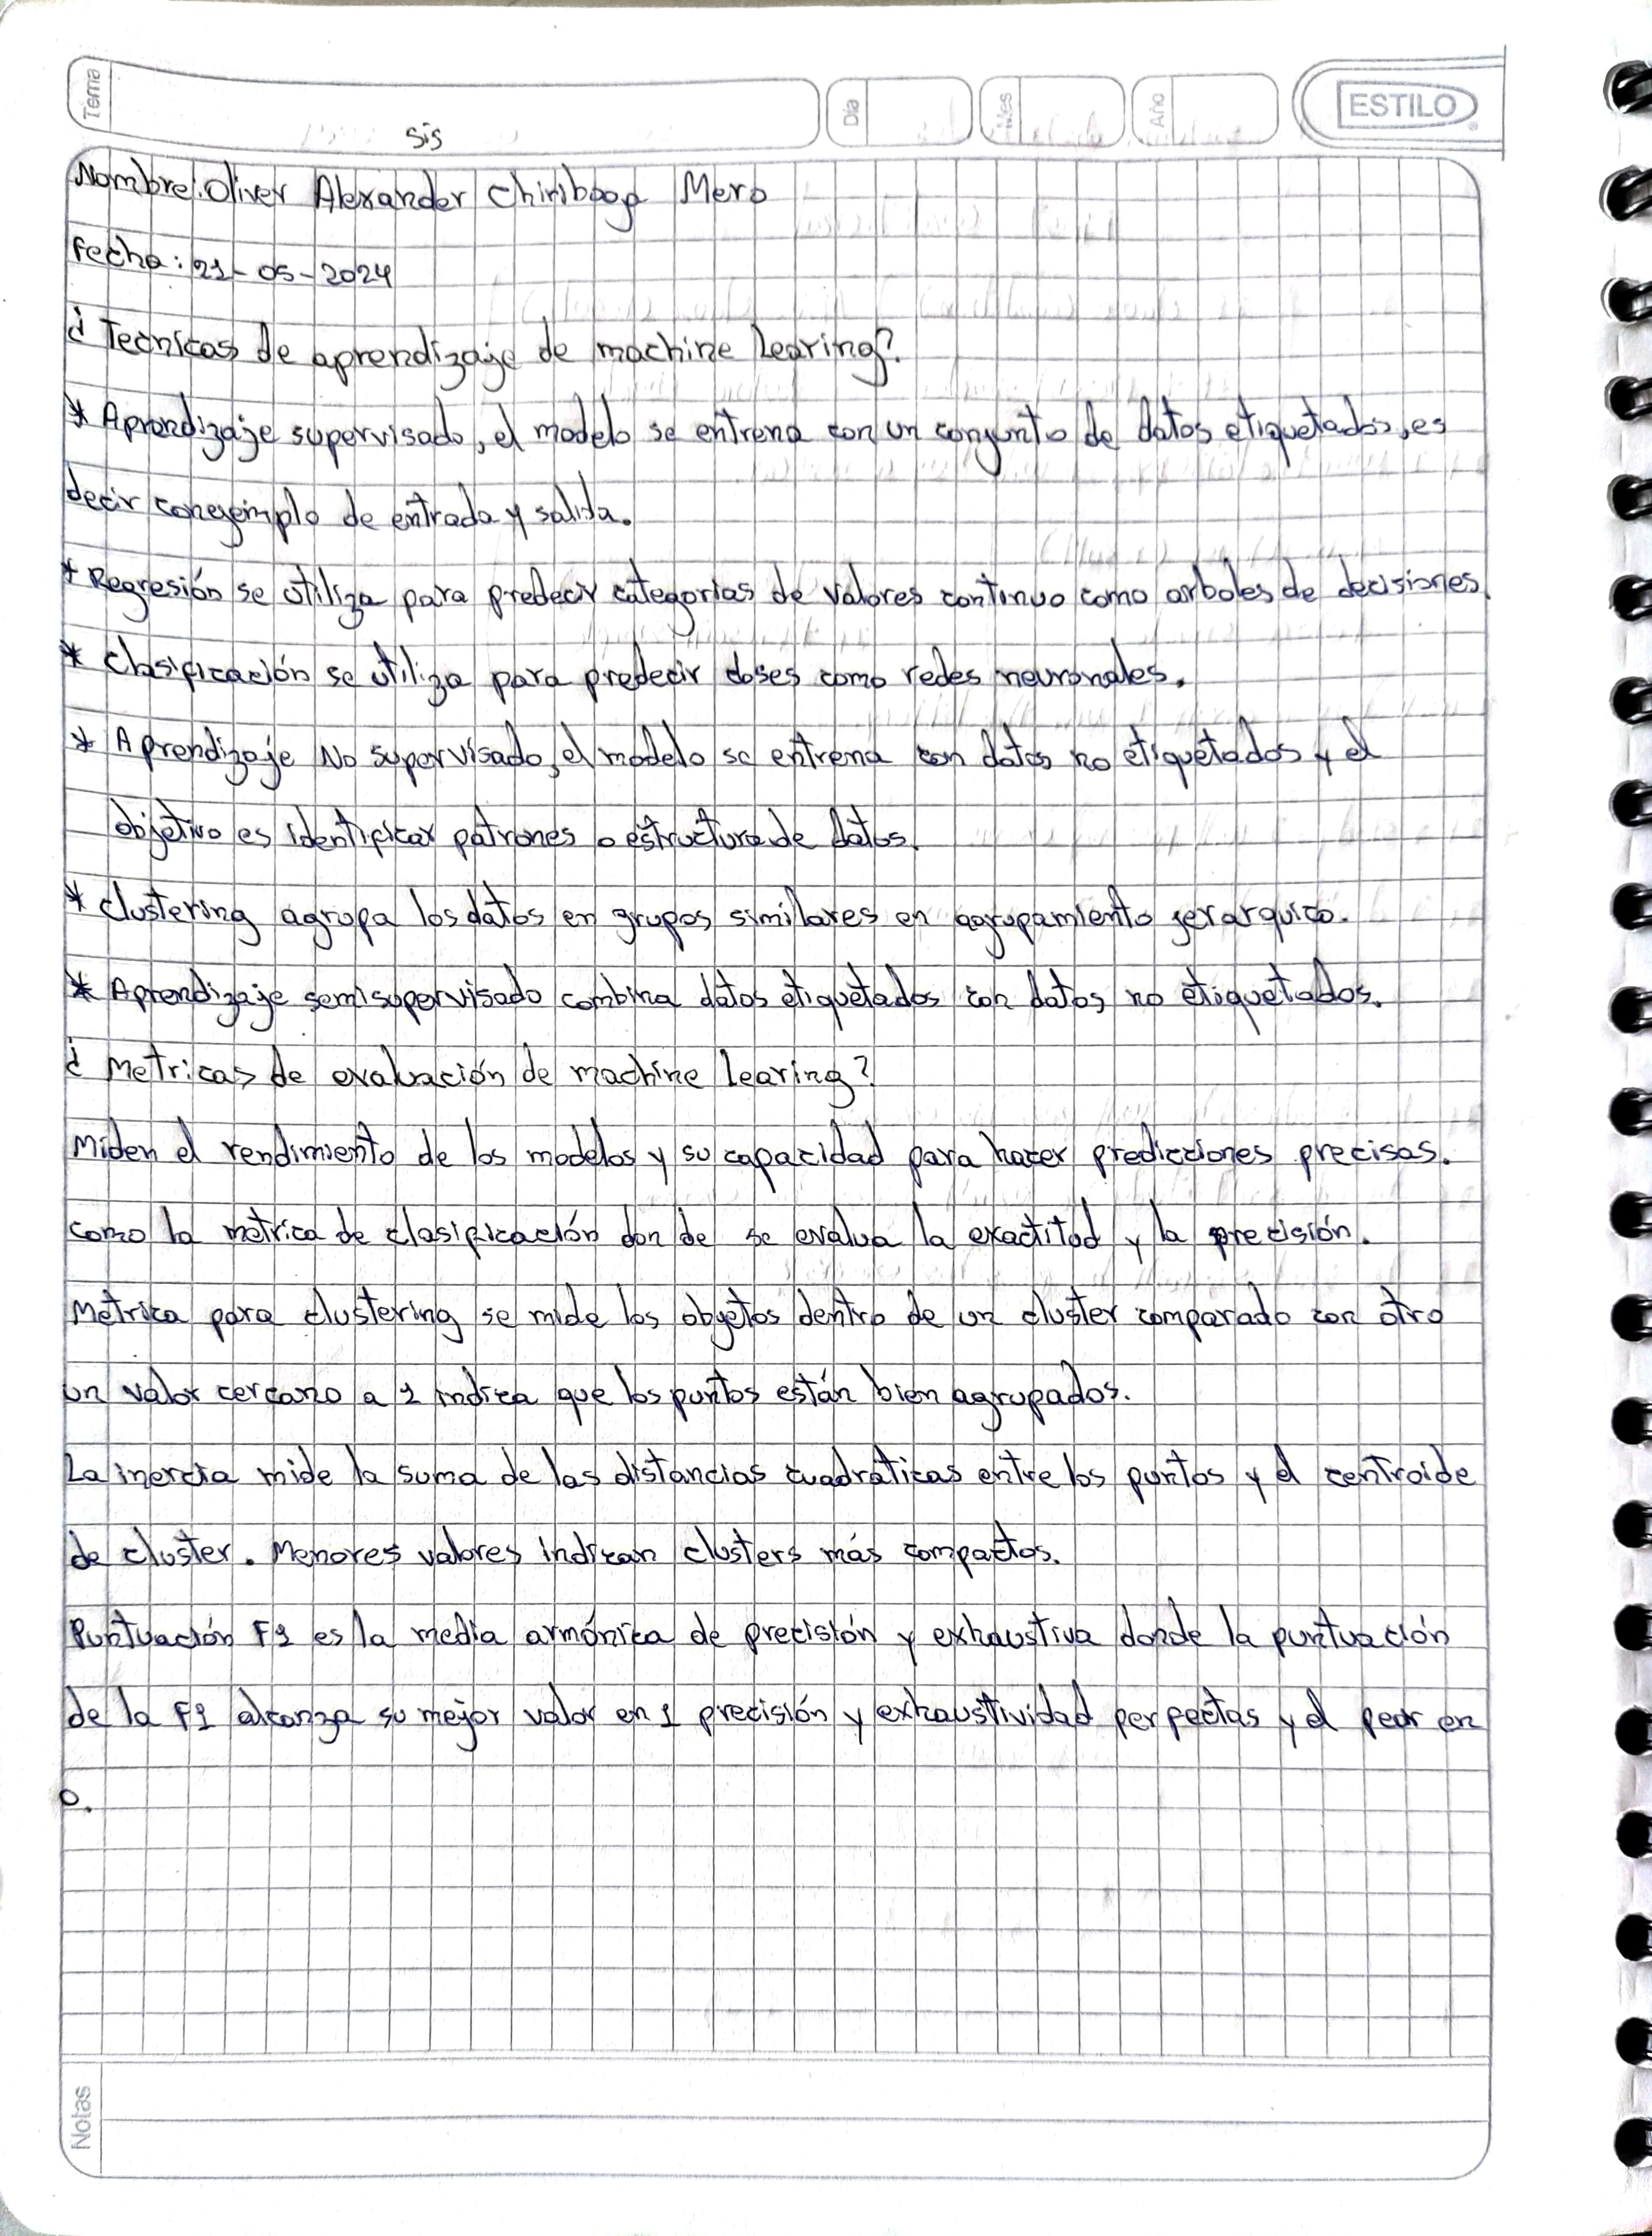 Tema
Día
Mes
Año
ESTILO
sis
Nombre: Oliver Alexander Chiriboga Mero
Fecha: 21-05-2024
¿Tecnicas de aprendizaje de machine learing?
* Aprendizaje supervisado, el modelo se entrena con un conyunto de datos etiquetados, es
decir conejemplo de entrada y salida.
* Regresión se utiliza para predecir categorias de valores continuo como arboles de decisiones.
* clasificación se utiliza para predecir clases como redes neuronales.
* Aprendizaje No supervisado, el modelo se entrena con datos no etiquetados y el
objetivo es identificar patrones o estructura de datos.
* clustering agrupa los datos en grupos similares en agrupamiento jerarquico.
* Aprendizaje semisupervisado combina datos etiquetados con datos no etiquetados.
¿Metricas de evaluación de machine learing?
Miden el rendimiento de los modelos y su capacidad para hacer predicciones precisas.
como la metrica de clasificación don de se evalua la exactitud y la precisión.
Metrica para clustering se mide los obyetos dentro de un cluster comparado con otro
un valor cercano a 1 indica que los puntos están bien agrupados.
La inercia mide la suma de las distancias cuadráticas entre los puntos y el centroide
de cluster. Menores valores indican clusters más compactos.
Puntuación F1 es la media armónica de precisión y exhaustiva donde la puntuación
de la F1 alcanza su mejor valor en 1 precisión y exhaustividad perfectas y el peor en
0.
Notas